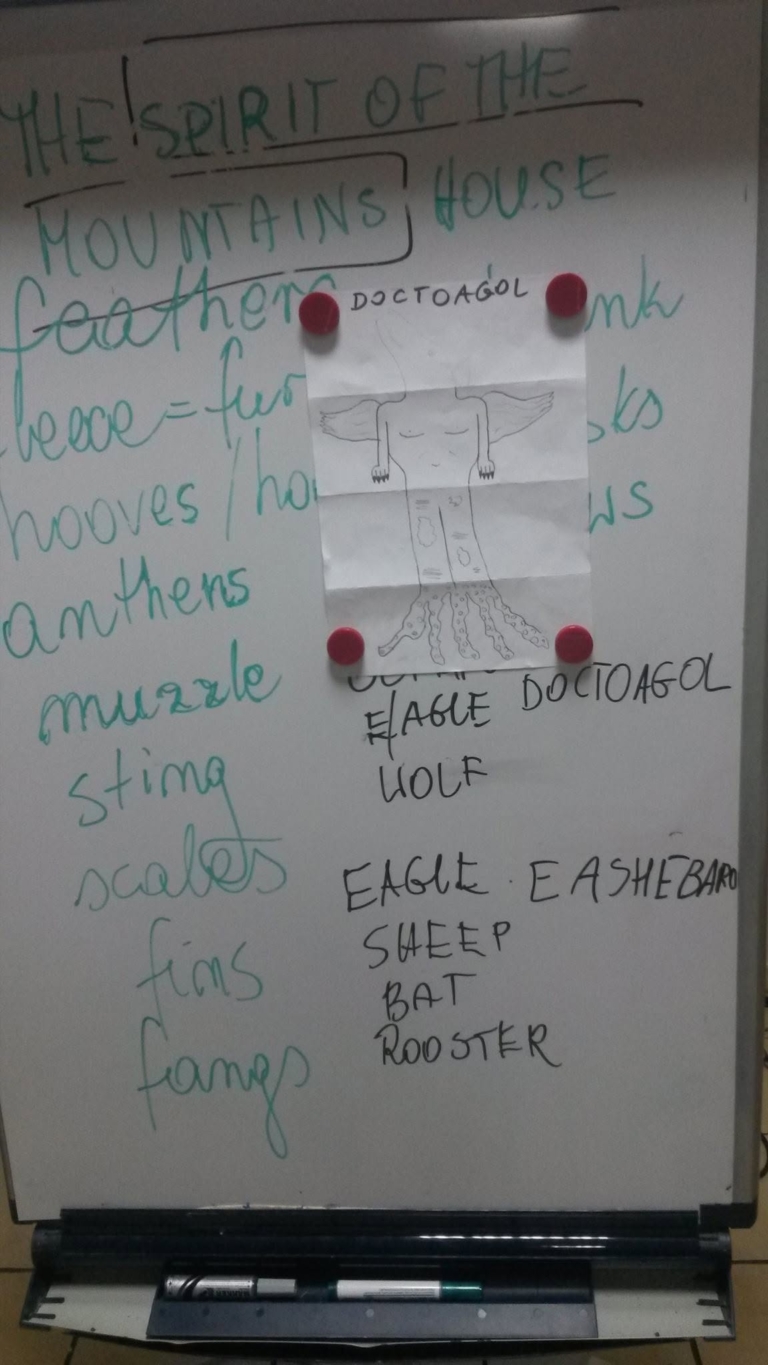 THE SPIRIT OF THE
MOUNTAINS HOUSE
feathers
leece = fur
hooves / ho
anthens
muzzle
sting
scales
fins
fangs
nk
sks
ws
DOCTOAGOL
EAGLE DOCTOAGOL
WOLF
EAGLE EASHEBARO
SHEEP
BAT
ROOSTER